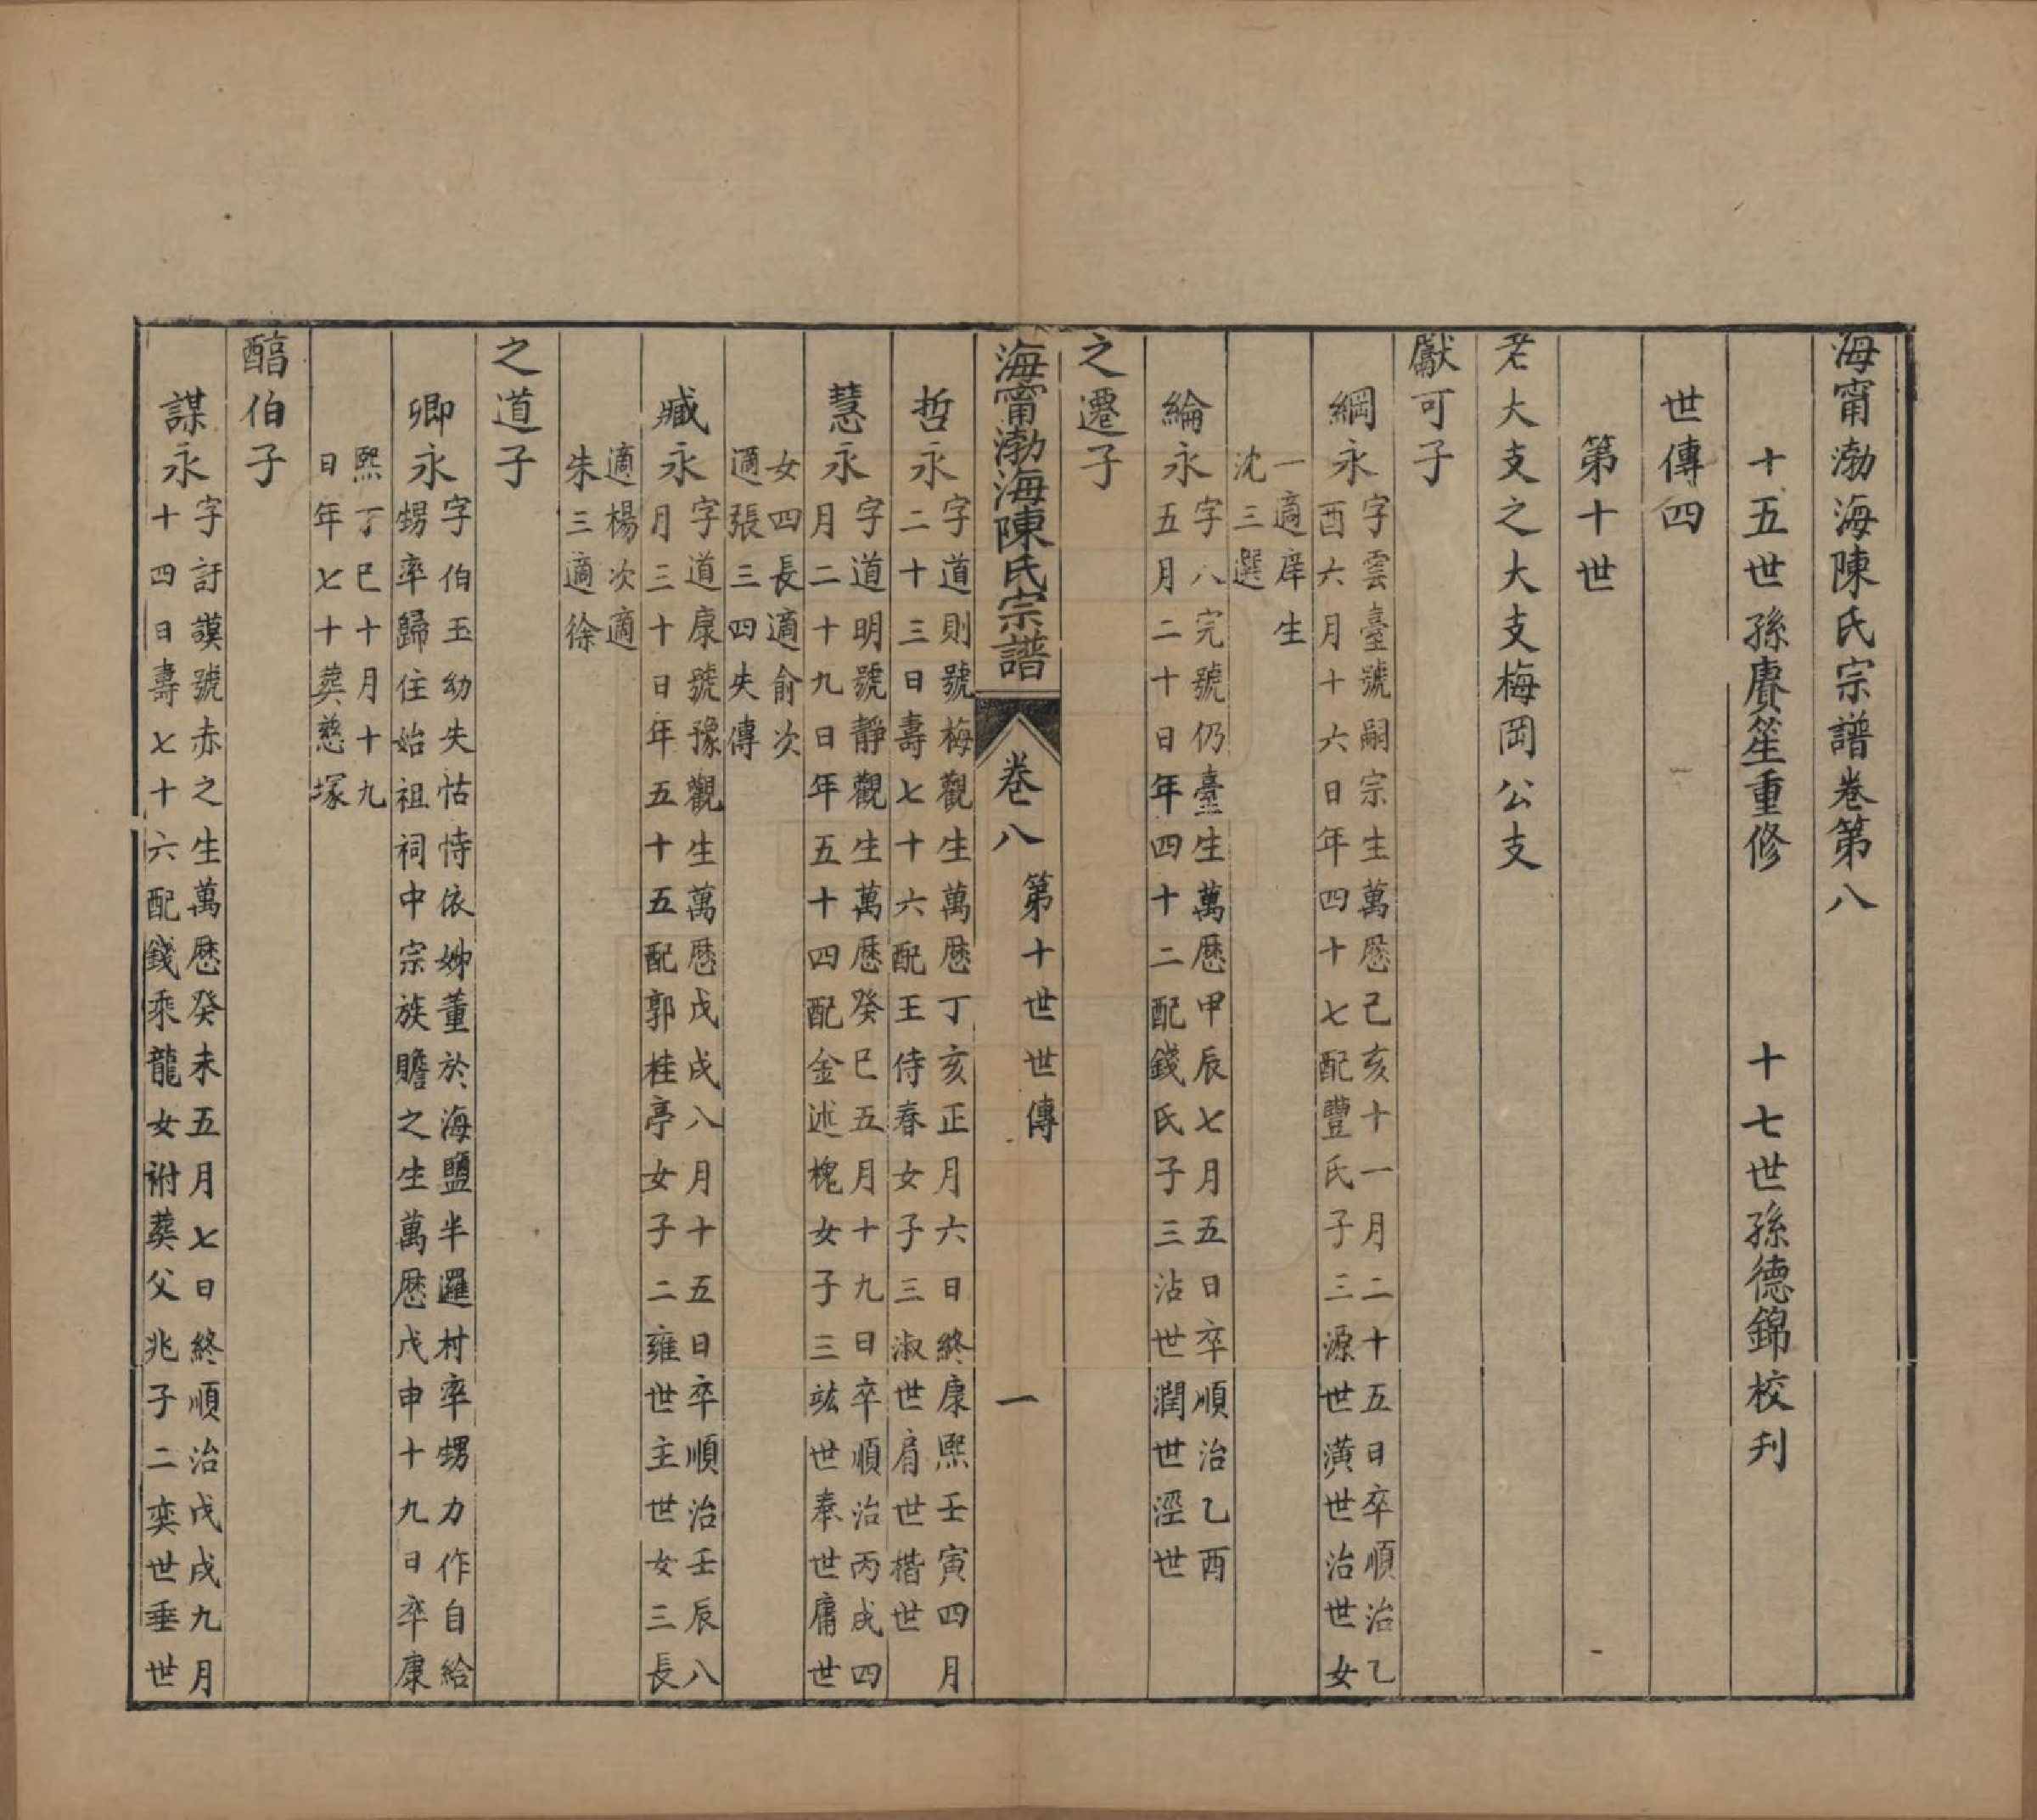 海甯渤海陳氏宗譜卷第八
十五世孫賡笙重修　十七世孫德錦校刋
世傳四
第十世
老大支之大支梅岡公支
獻可子
綱永
字雲臺號嗣宗生萬歷己亥十一月二十五日卒順治乙
酉六月十六日年四十七配豐氏子三源世潢世治世女
一適庠生
沈三選
綸永
字八完號仍臺生萬歷甲辰七月五日卒順治乙酉
五月二十日年四十二配錢氏子三沾世潤世涇世
之遷子
海甯渤海陳氏宗譜　卷八　第十世世傳　一
哲永
字道則號梅觀生萬歷丁亥正月六日終康熙壬寅四月
二十三日壽七十六配王侍春女子三淑世肩世楷世
慧永
字道明號靜觀生萬歷癸巳五月十九日卒順治丙戌四
月二十九日年五十四配金述槐女子三竑世奉世庸世
女四長適俞次
適張三四失傳
臧永
字道康號豫觀生萬歷戊戌八月十五日卒順治壬辰八
月三十日年五十五配郭桂亭女子二雍世主世女三長
適楊次適
朱三適徐
之道子
卿永
字伯玉幼失怙恃依姊董於海鹽半邏村率甥力作自給
甥率歸住始祖祠中宗族贍之生萬歷戊申十九日卒康
熙丁巳十月十九
日年七十葬慈塚
醕伯子
謀永
字訏謨號赤之生萬歷癸未五月七日終順治戊戌九月
十四日壽七十六配錢乘龍女祔葬父兆子二奕世垂世